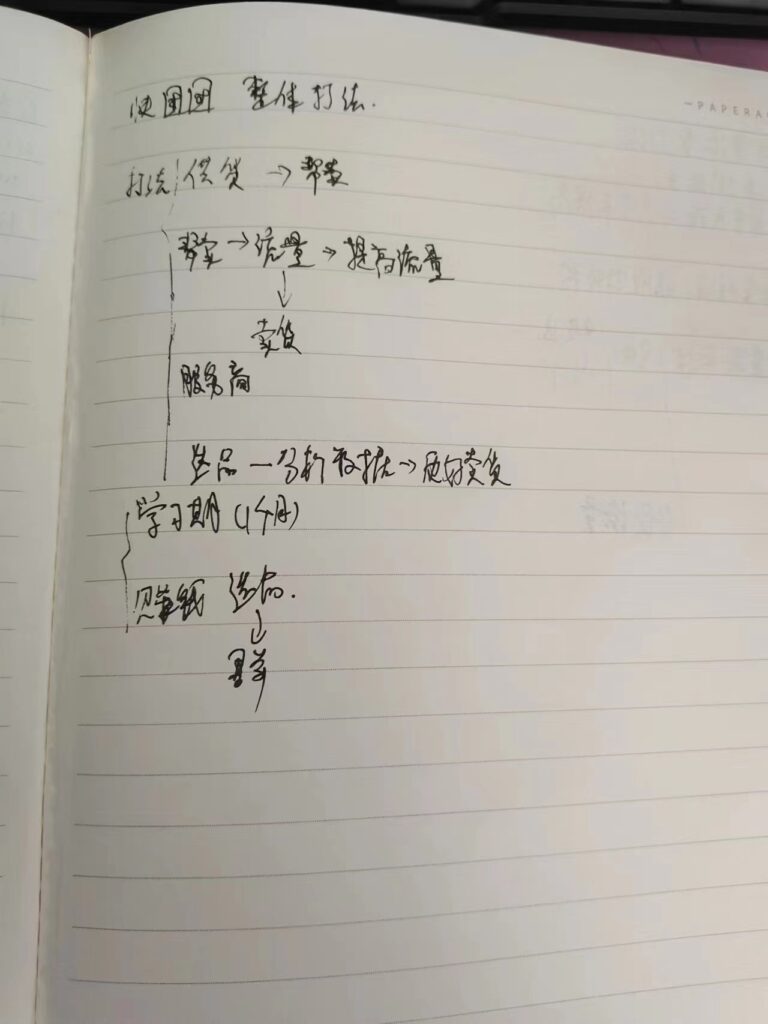 快团团 整体打法.
—PAPERA
打法 供货 → 帮卖
帮卖 → 流量 → 提高流量
↓
卖货
服务商
选品 — 分析数据 → 更好卖货
学习期 (1个月)
选品.
↓